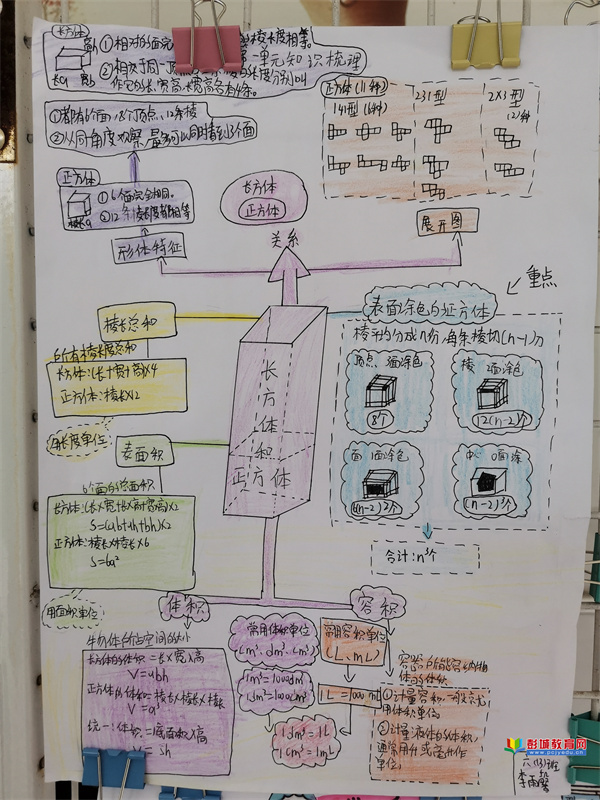 长方体
①相对的面完
的棱长度相等。
②相交于同一顶点
的长度分别叫
作它的长、宽、高,长宽高各有4条。
第一单元知识梳理
①都有6个面,8个顶点、12条棱
②从不同角度观察,最多可以同时看到3个面
正方体
①6个面完全相同。
②12条棱长度都相等
棱长a
形体特征
长方体
正方体
关系
正方体(11种)
141型(6种)
231型
2×3型
展开图
重点
表面涂色的正方体
棱平均分成n份,每条棱切(n-1)刀
顶点 3面涂色
8个
棱 2面涂色
12(n-2)个
面 1面涂色
6(n-2)²个
中心 0面涂
(n-2)³个
合计:n³个
长方体和正方体
棱长总和
所有棱长度总和
长方体:(长+宽+高)×4
正方体:棱长×12
用长度单位
表面积
6个面的总面积
长方体:(长×宽+长×高+宽×高)×2
S=(ab+ah+bh)×2
正方体:棱长×棱长×6
S=6a²
用面积单位
体积
物体所占空间的大小
长方体的体积=长×宽×高
V=abh
正方体的体积=棱长×棱长×棱长
V=a³
统一:体积=底面积×高
V=Sh
常用体积单位
(m³、dm³、cm³)
1m³=1000dm³
1dm³=1000cm³
容积
常用容积单位
(L、mL)
1L=1000mL
1dm³=1L
1cm³=1mL
容器所能容纳物
体的体积
①计量容积,一般用
用体积单位
②计量液体的体积,
通常用升或毫升作
单位。
六(13)班
李雨馨
彭城教育网
www.pcjyedu.cn